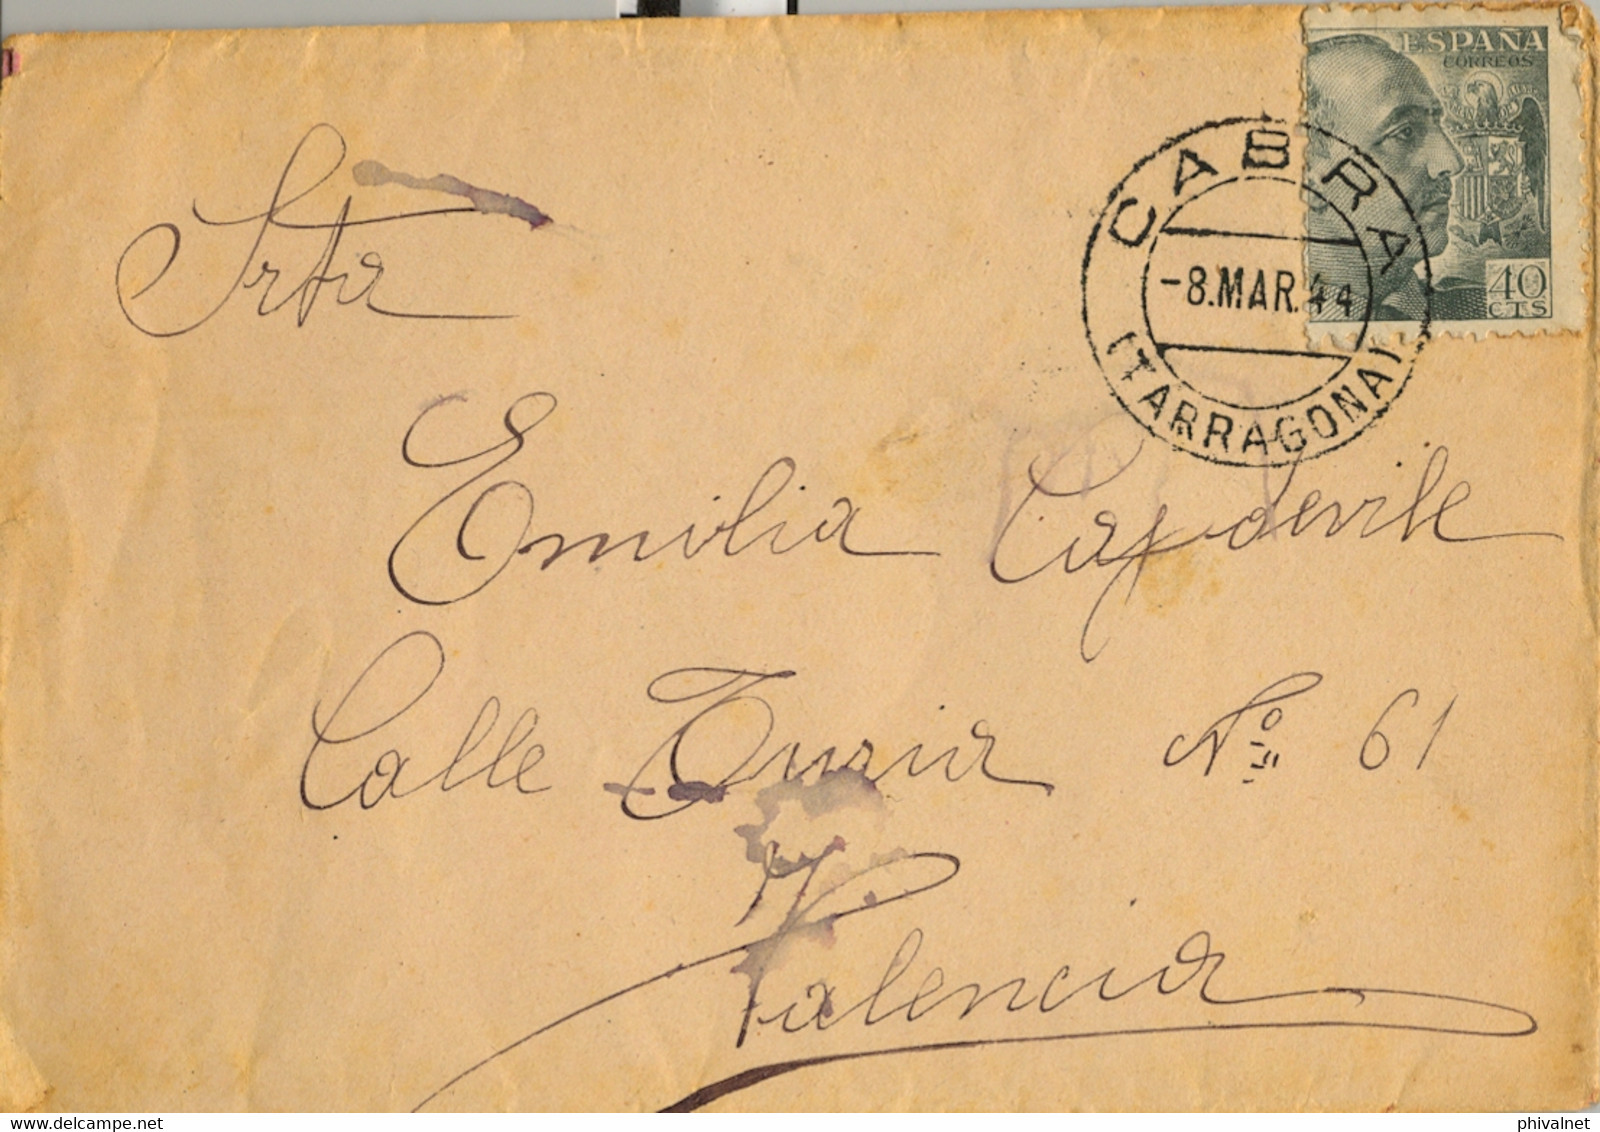 ESPAÑA
CORREOS
40
CTS
CABRA
-8.MAR.44
(TARRAGONA)
Srta
Emilia Capdevile
Calle Turia Nº 61
Valencia
delcampe.net
phivalnet